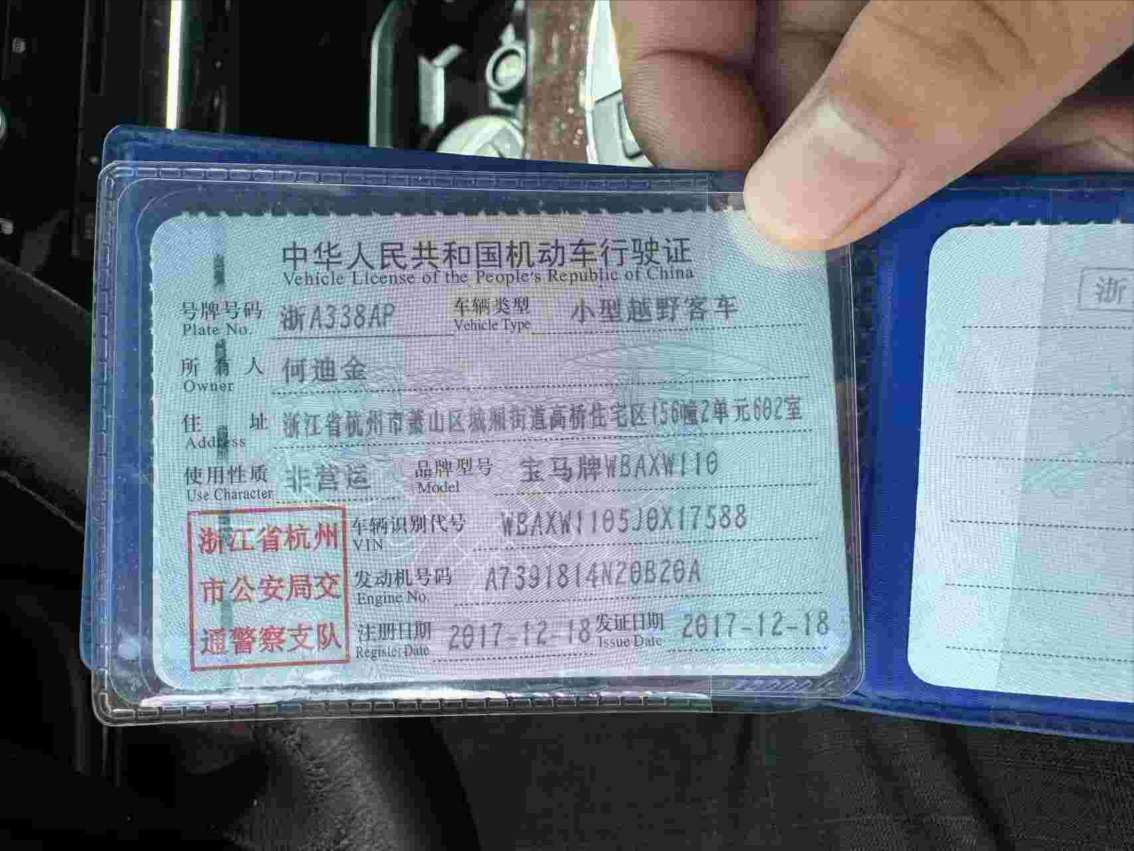 中华人民共和国机动车行驶证
Vehicle License of the People's Republic of China
号牌号码 浙A338AP 车辆类型 小型越野客车
Plate No. Vehicle Type
所有人 何迪金
Owner
住址 浙江省杭州市萧山区城厢街道高桥住宅区156幢2单元602室
Address
使用性质 非营运 品牌型号 宝马牌WBAXW110
Use Character Model
浙江省杭州
市公安局交
通警察支队
车辆识别代号 WBAXW1105J0X17588
VIN
发动机号码 A7391814N20B20A
Engine No.
注册日期 2017-12-18 发证日期 2017-12-18
Register Date Issue Date
浙